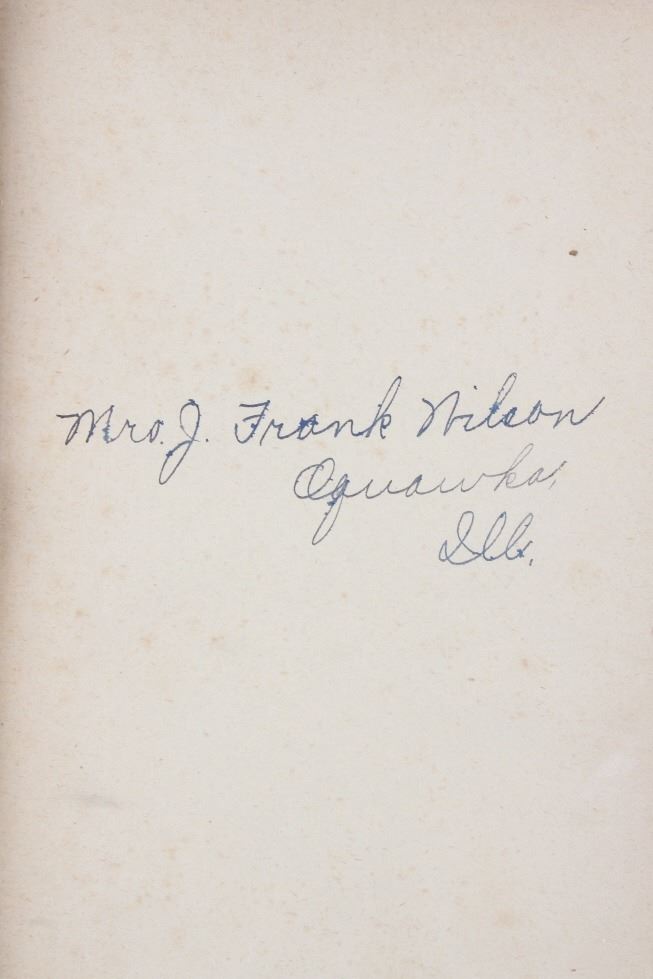 Mrs. J. Frank Wilson
Oquawka,
Ill.